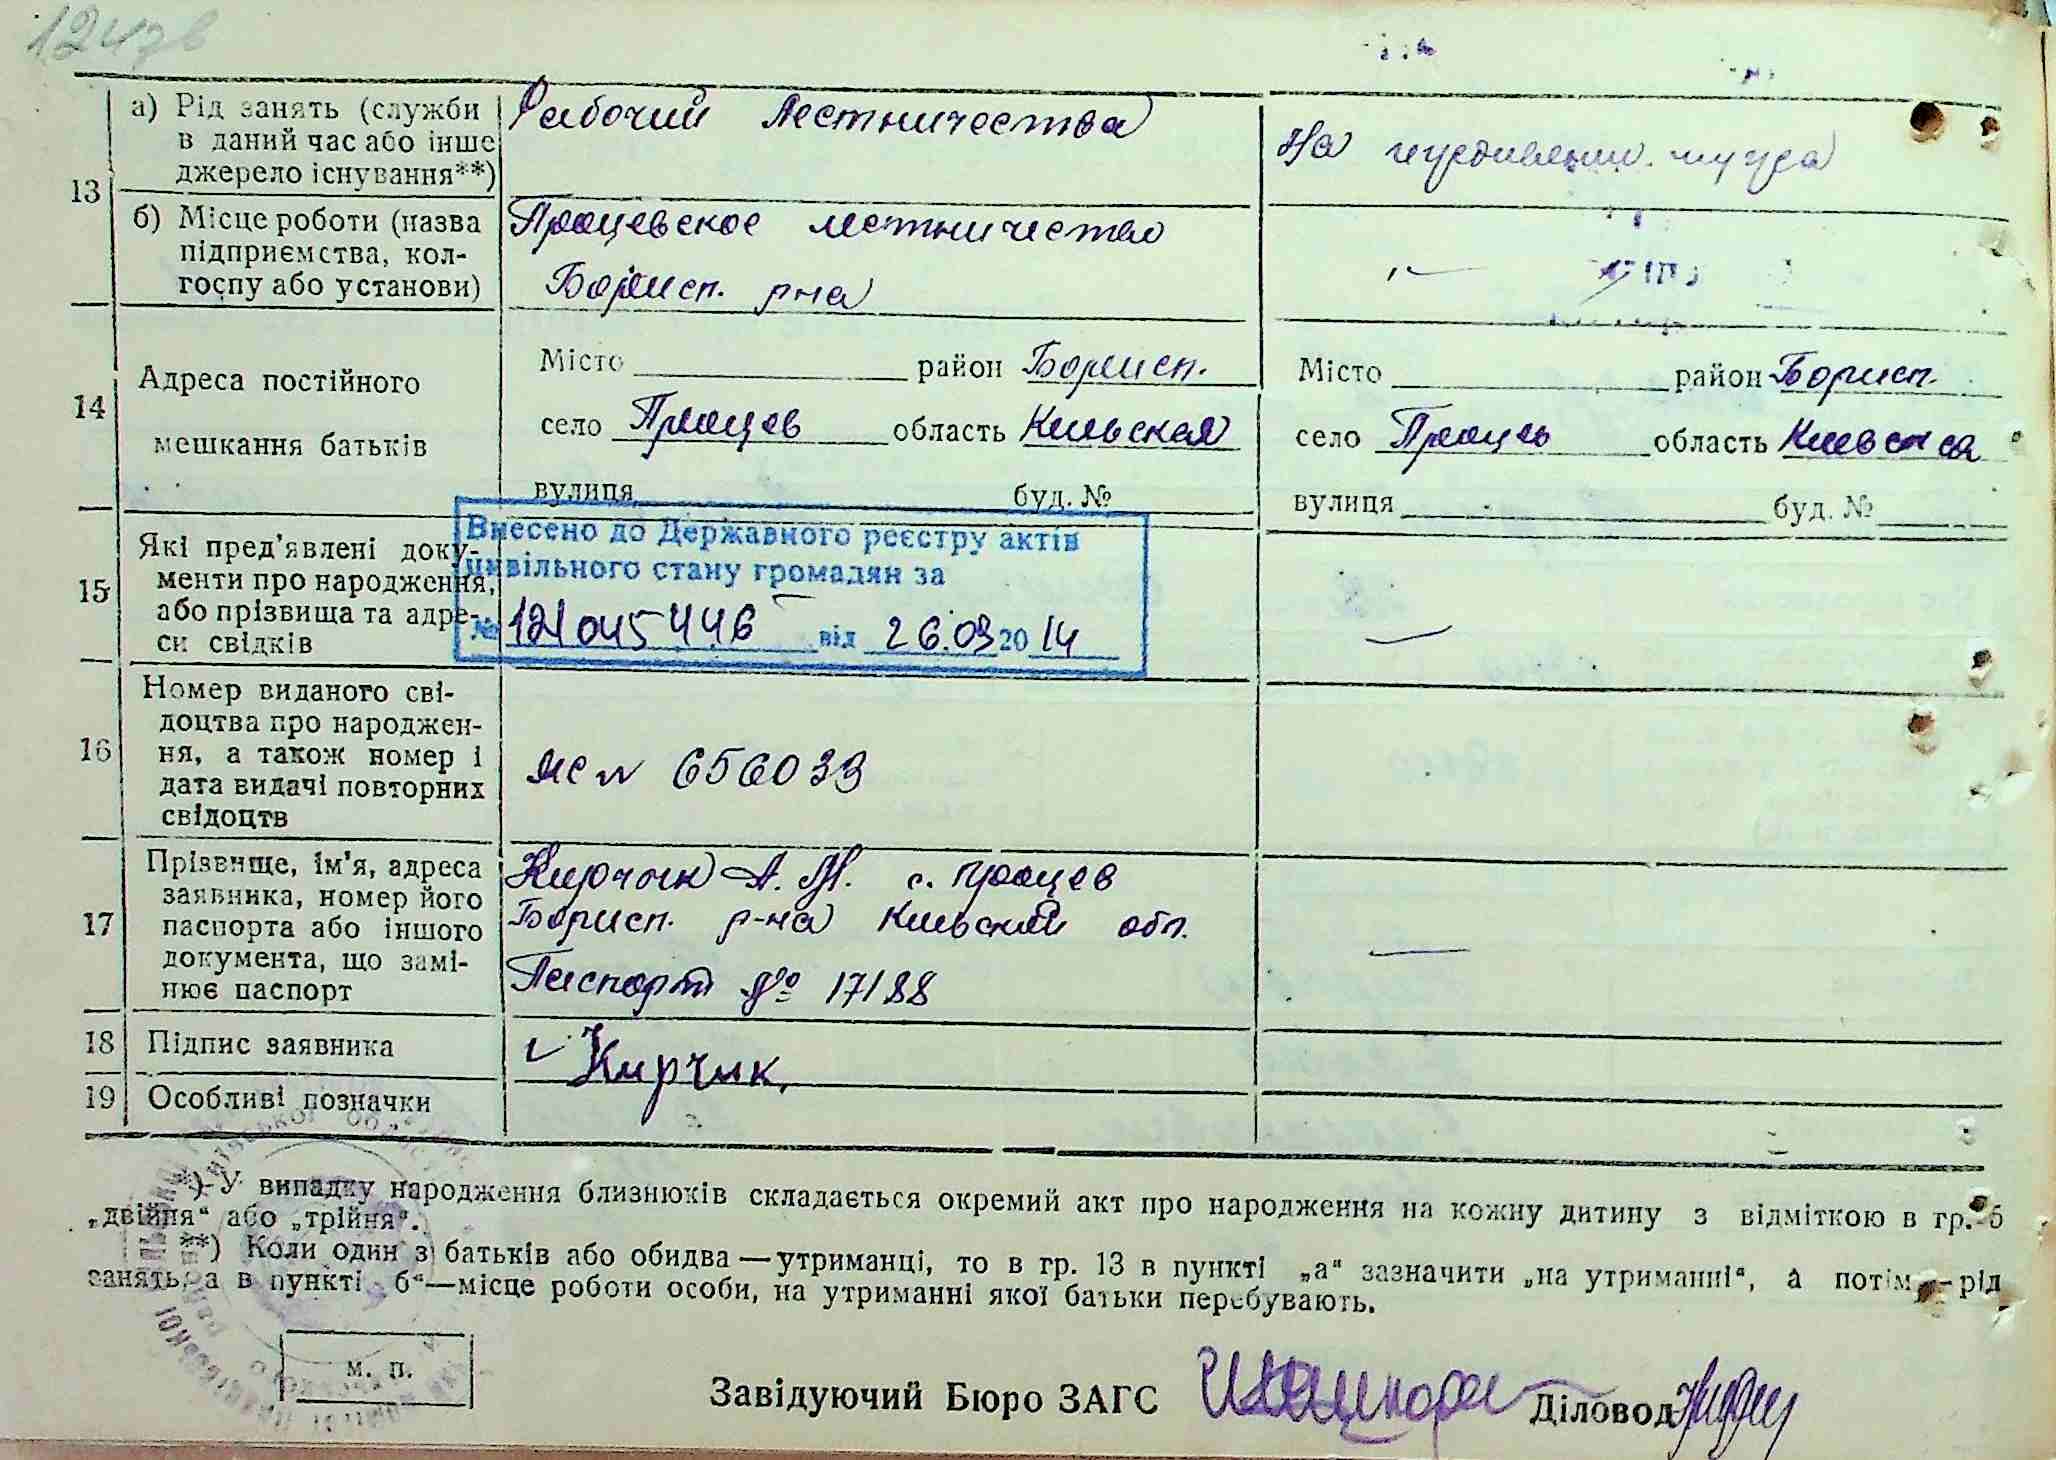 13
а) Рід занять (служби
в даний час або інше
джерело існування**)
Рабочий лестничества
На иждивении мужа
б) Місце роботи (назва
підприємства, кол-
госпу або установи)
Процевское лестничество
Борисп. р-на
14
Адреса постійного
мешкання батьків
Місто район Борисп.
село Процев область Киевская
вулиця буд. №
Місто район Борисп.
село Процев область Киевская
вулиця буд. №
15
Які пред'явлені доку-
менти про народження,
або прізвища та адре-
си свідків
Внесено до Державного реєстру актів
цивільного стану громадян за
№ 121045446 від 26.03 2014
16
Номер виданого сві-
доцтва про народжен-
ня, а також номер і
дата видачі повторних
свідоцтв
N 656033
17
Прізвище, ім'я, адреса
заявника, номер його
паспорта або іншого
документа, що замі-
нює паспорт
Кирчик А. М. с. Процев
Борисп. р-на Киевской обл.
Паспорт № 17188
18
Підпис заявника
Кирчик
19
Особливі позначки
*) У випадку народження близнюків складається окремий акт про народження на кожну дитину з відміткою в гр. 5
„двійня“ або „трійня“.
**) Коли один з батьків або обидва — утриманці, то в гр. 13 в пункті „а“ зазначити „на утриманні“, а потім — рід
занять, а в пункті „б“ — місце роботи особи, на утриманні якої батьки перебувають.
м. п.
Завідуючий Бюро ЗАГС
Діловод